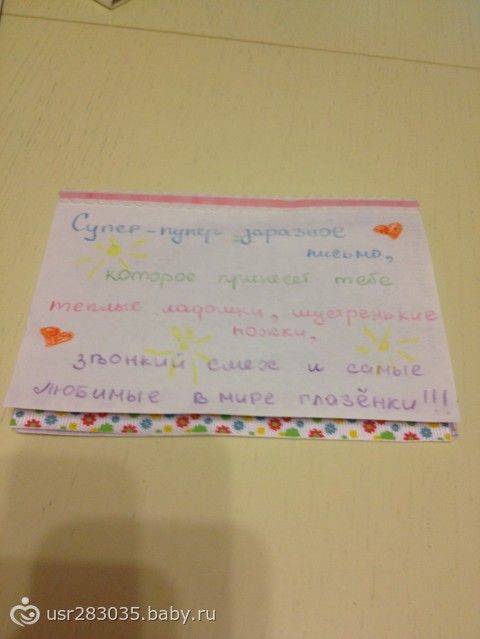 Супер-пупер заразное
письмо,
которое принесет тебе
теплые ладошки, шустренькие
ножки,
звонкий смех и самые
любимые в мире глазёнки!!!
usr283035.baby.ru